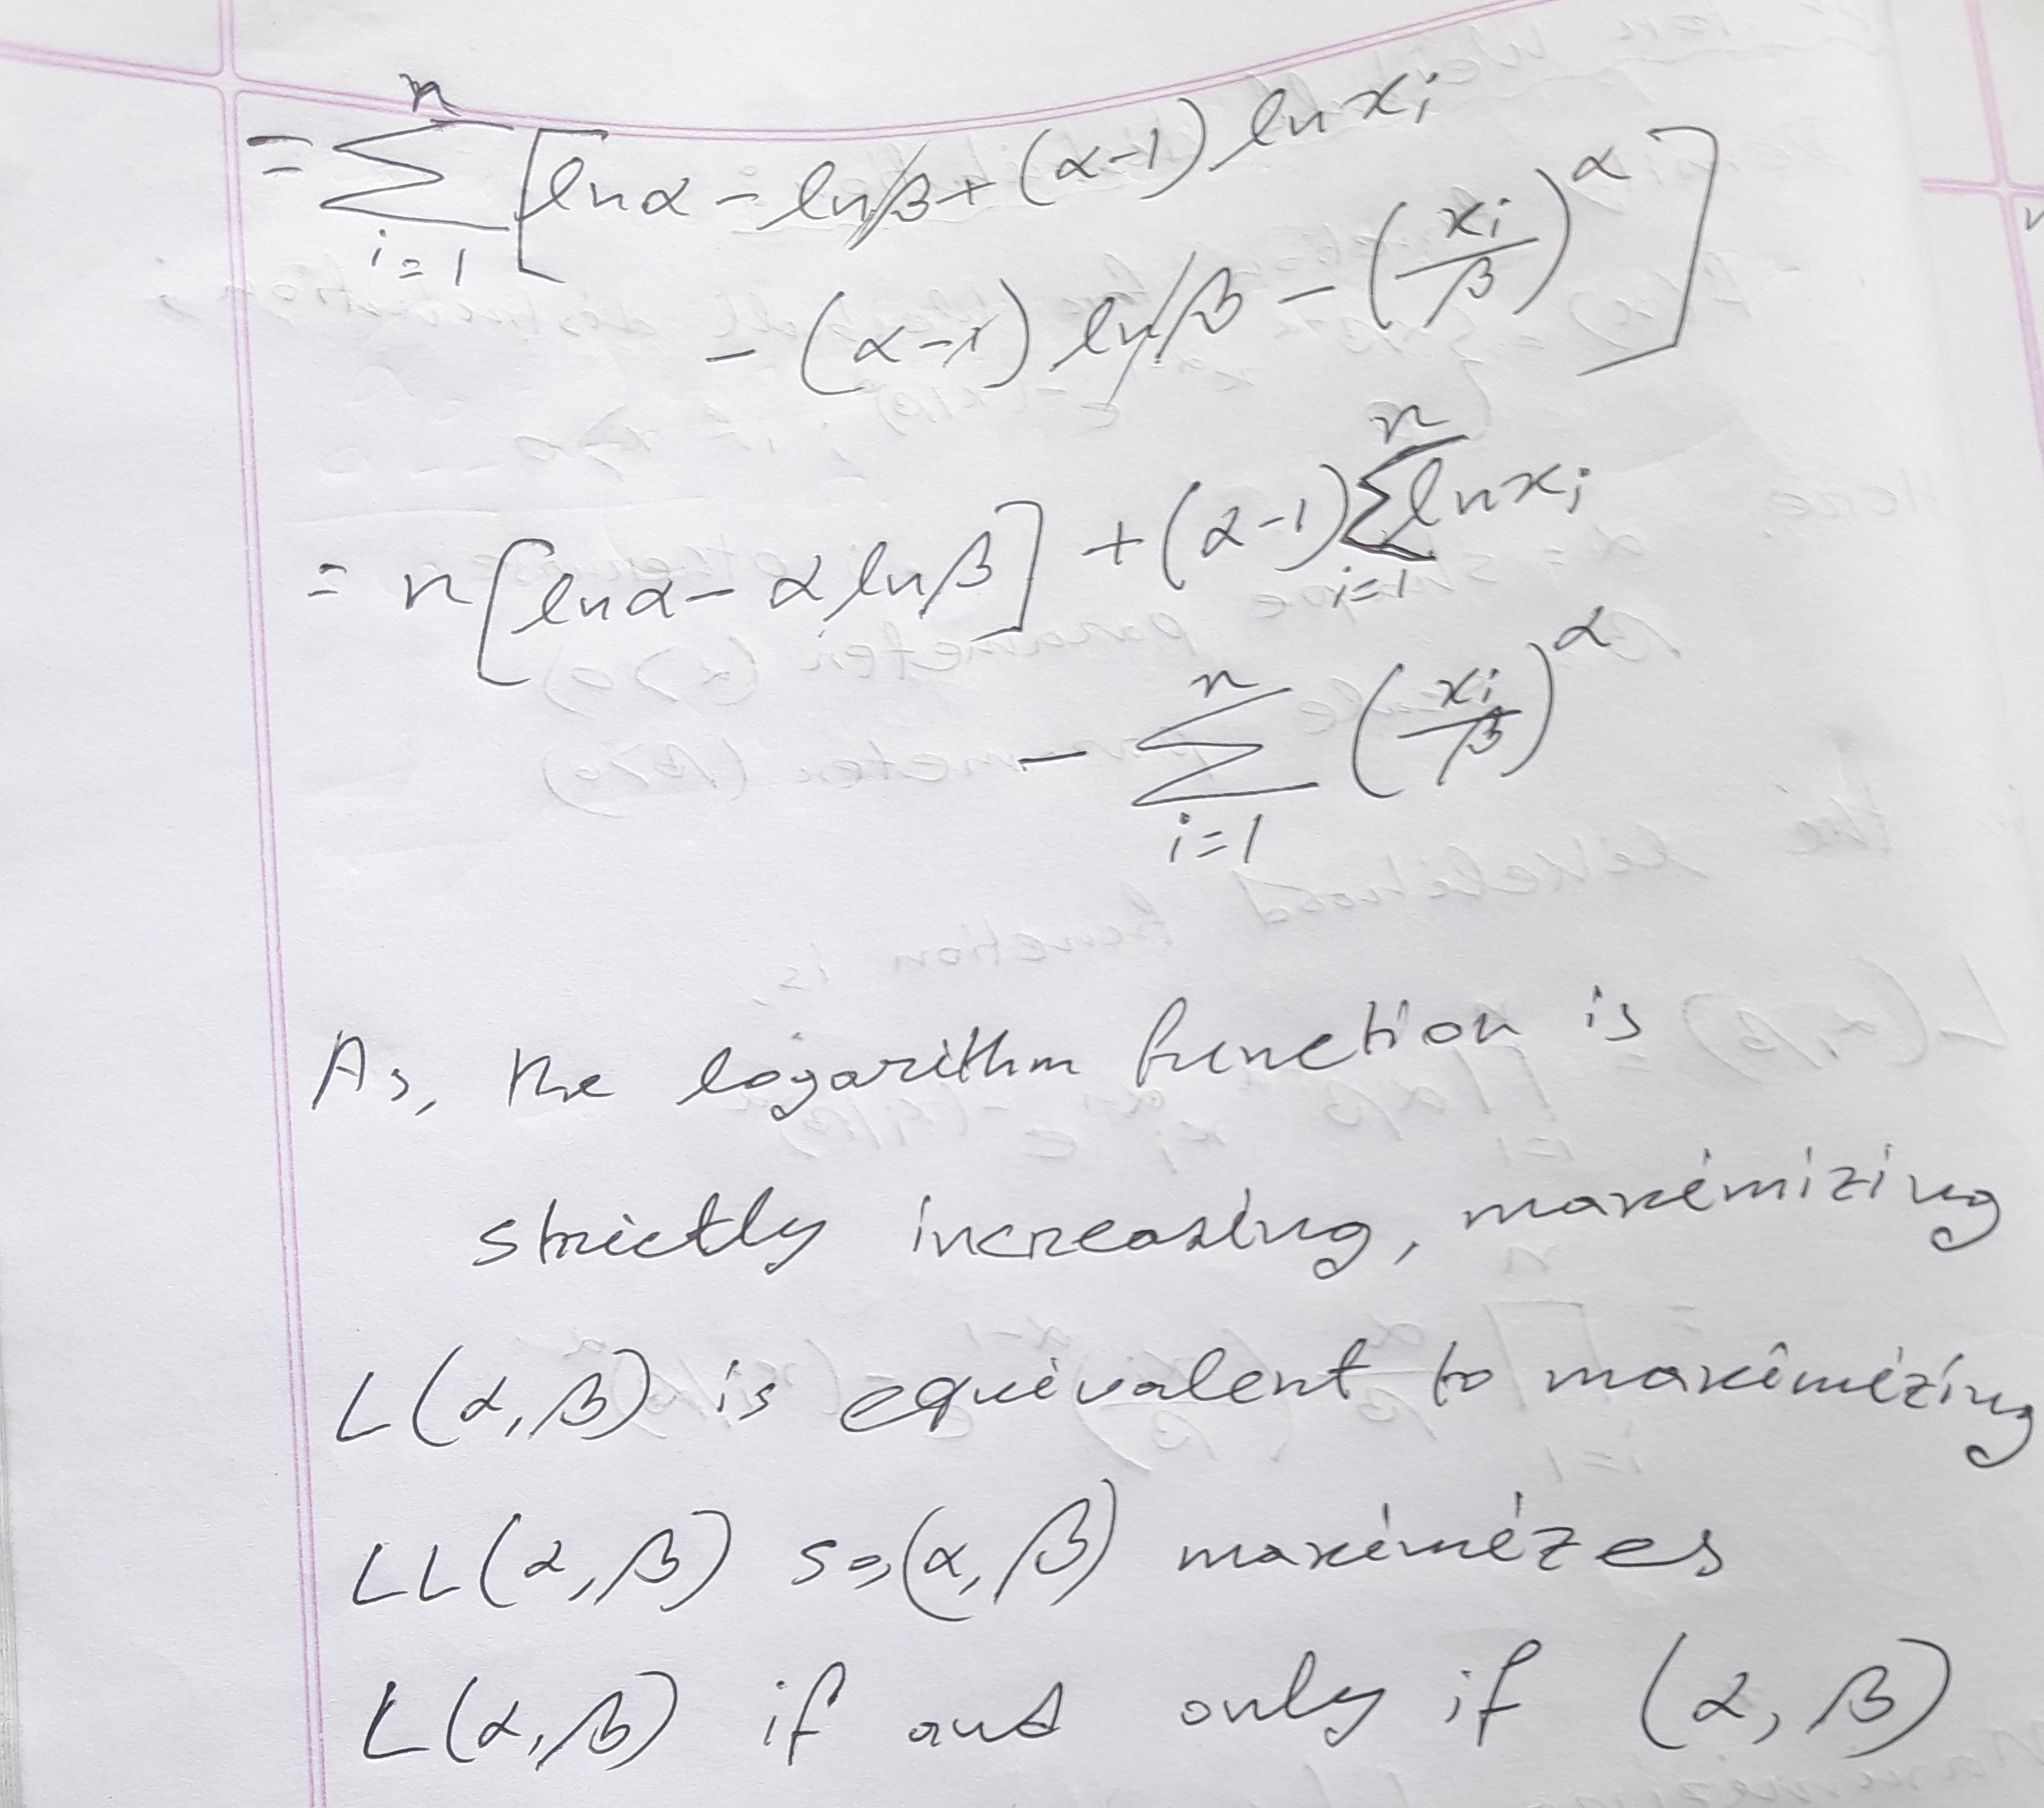 = ∑_{i=1}^{n} [ln α − ln β + (α−1) ln x_i
− (α−1) ln β − (x_i/β)^α]
= n[ln α − α ln β] + (α−1) ∑_{i=1}^{n} ln x_i
− ∑_{i=1}^{n} (x_i/β)^α
As, the logarithm function is
strictly increasing, maximizing
L(α,β) is equivalent to maximizing
LL(α,β) so, (α,β) maximizes
L(α,β) if and only if (α,β)